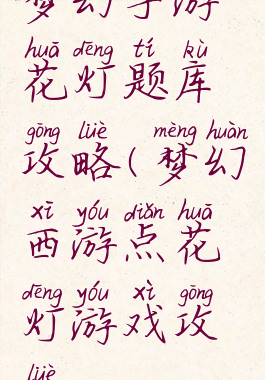 梦幻手游
huā dēng tí kù
花灯题库
gōng lüè mèng huàn
攻略(梦幻
xī yóu diǎn huā
西游点花
dēng yóu xì gōng
灯游戏攻
lüè